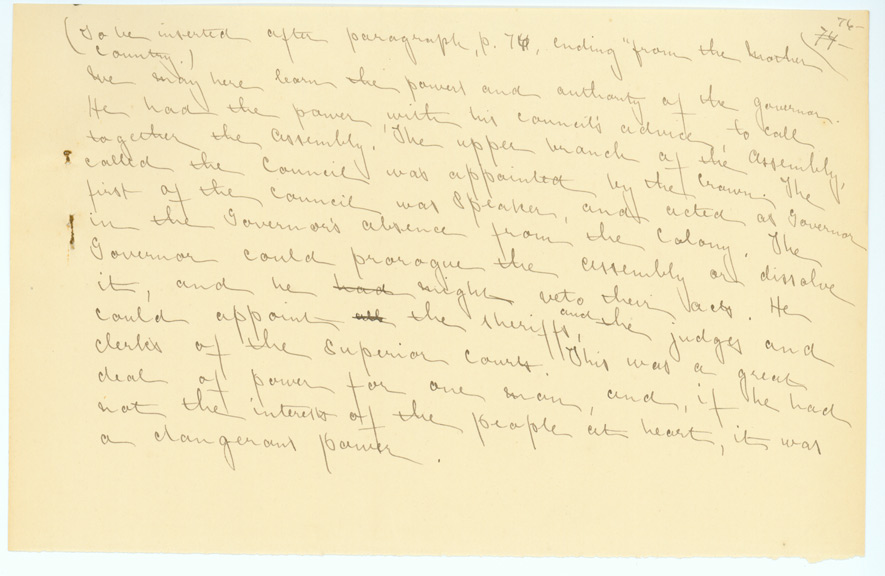 76-
74-
(To be inserted after paragraph, p. 74, ending "from the Mother
Country.")
We may here learn the powers and authority of the governor.
He had the power, with his council's advice, to call
together the assembly. The upper branch of the assembly,
called the Council was appointed by the Crown. The
first of the council was Speaker, and acted as Governor
in the Governor's absence from the Colony. The
Governor could prorogue the assembly or dissolve
it, and he had might veto their acts. He
could appoint all the sheriffs, and the judges and
clerks of the Superior Courts. This was a great
deal of power for one man, and, if he had
not the interests of the people at heart, it was
a dangerous power.